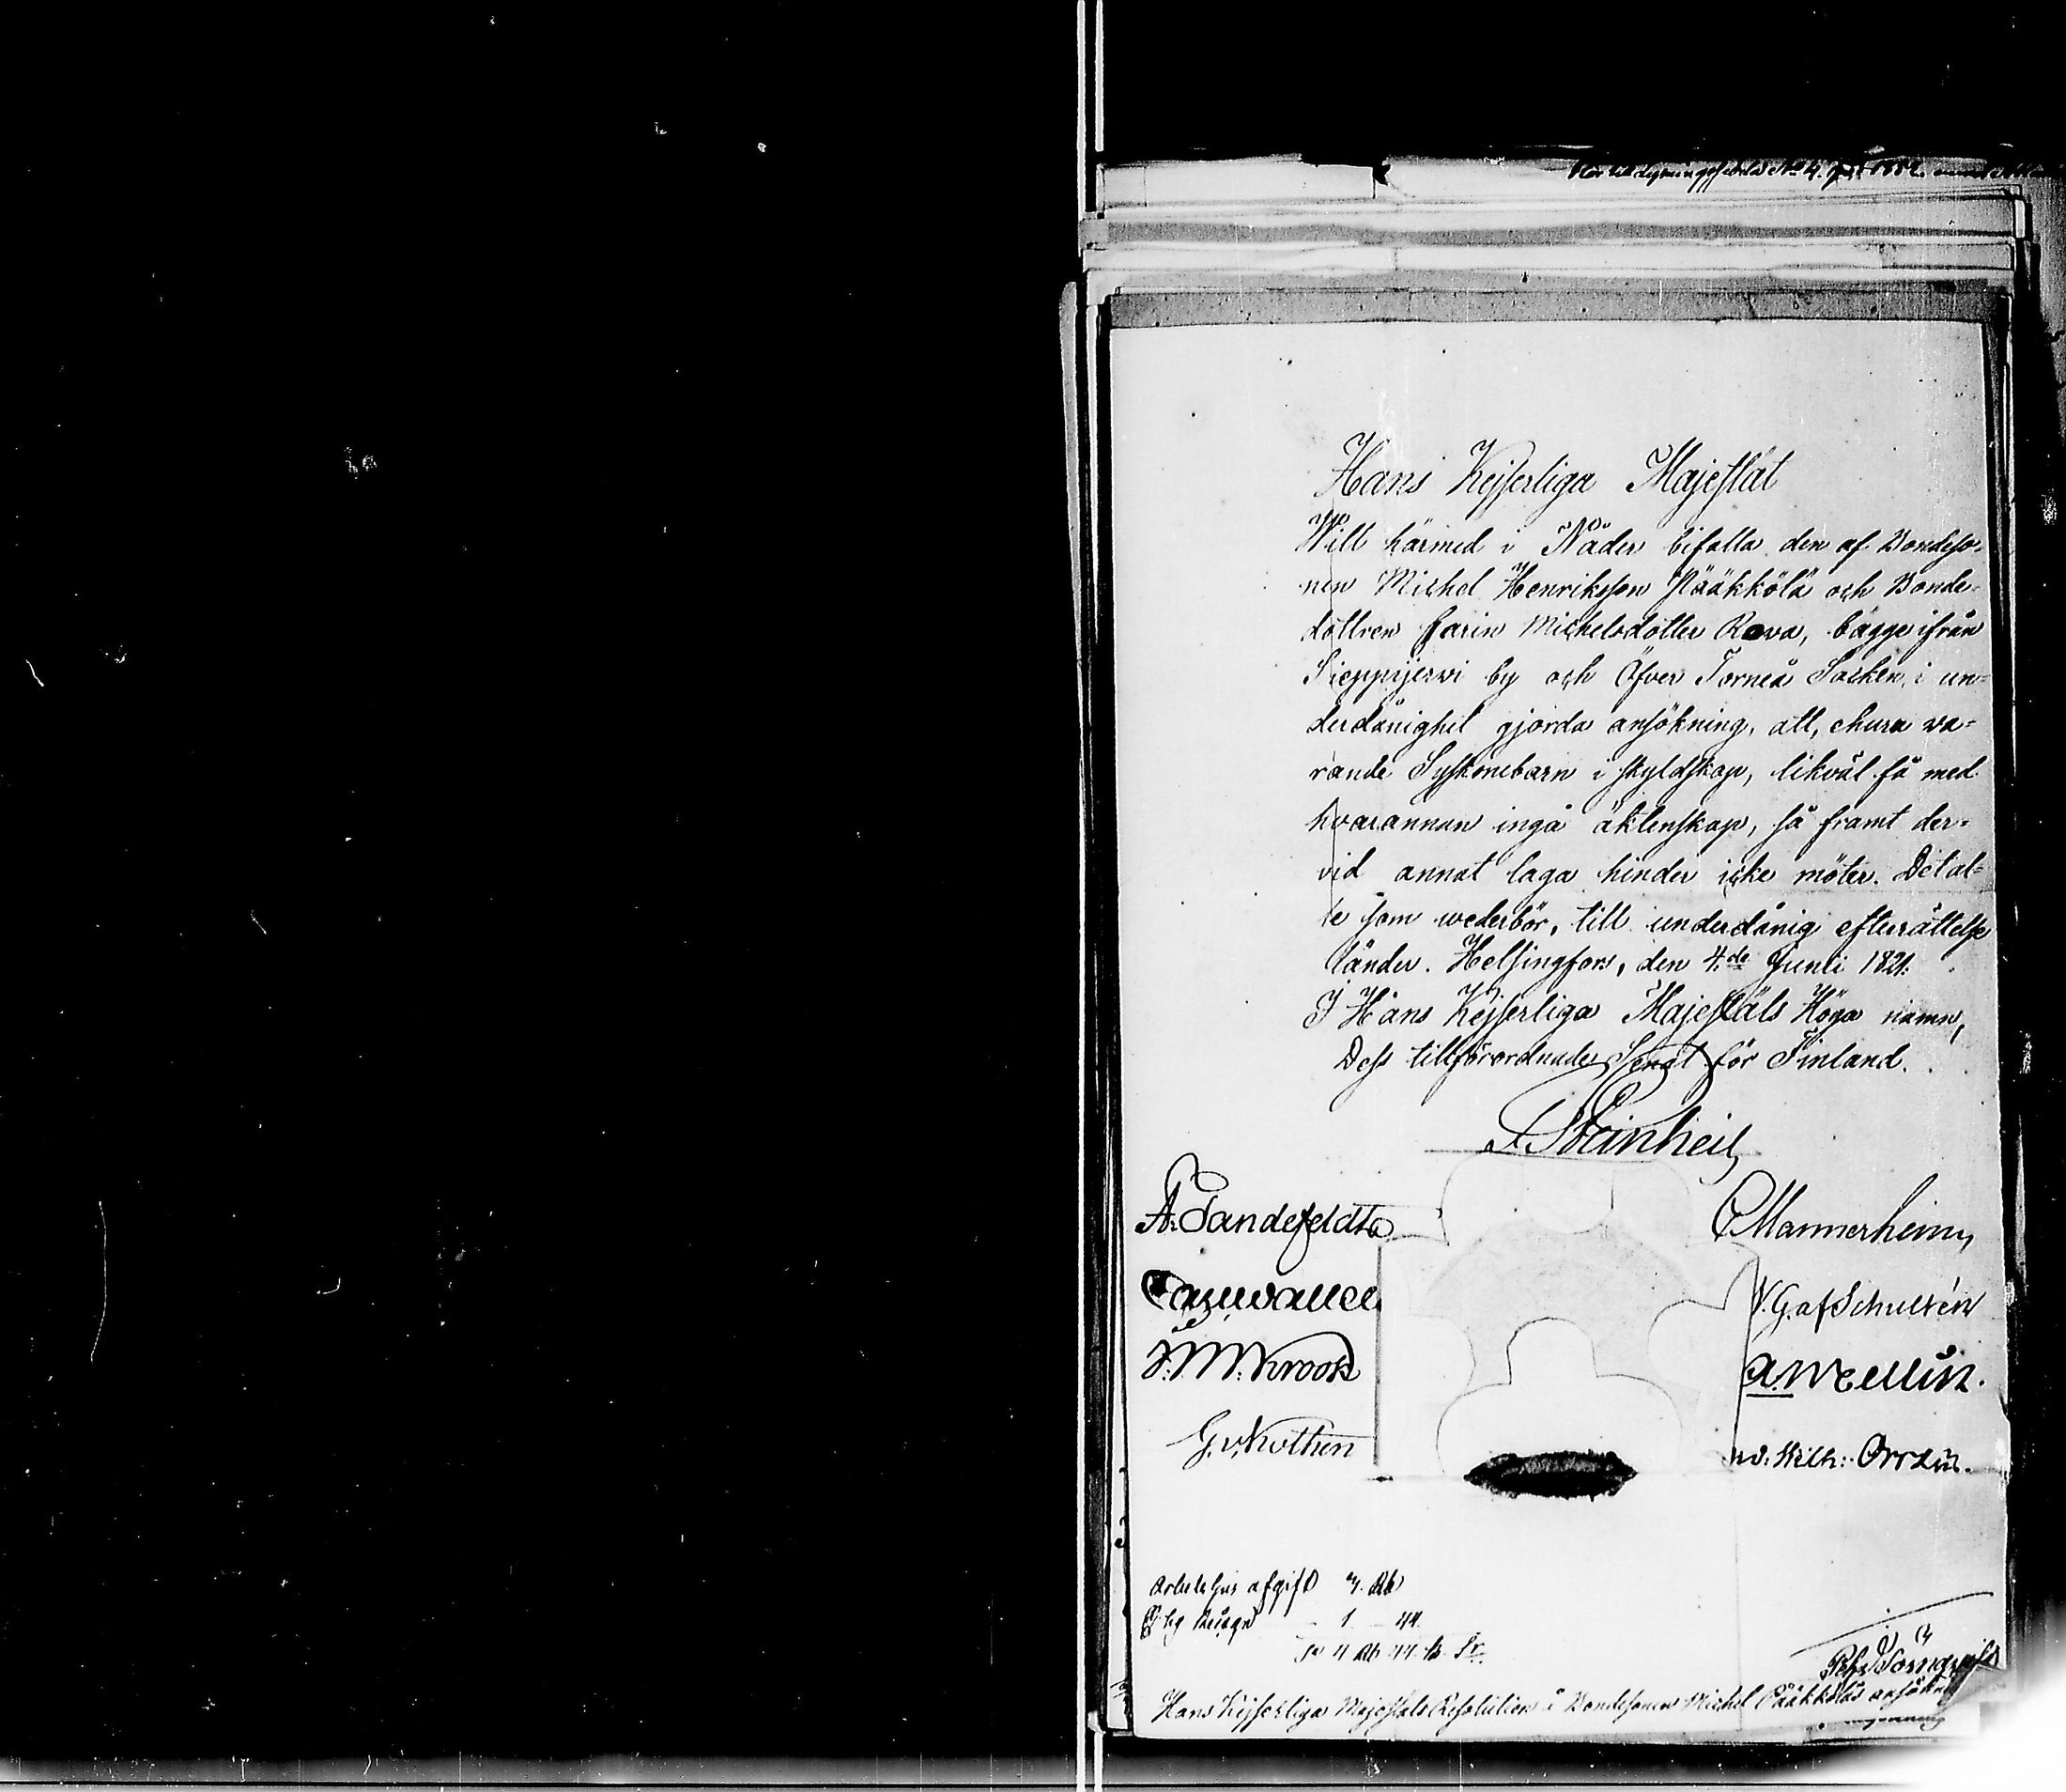 Hans Kejserliga Majestät
Will härmed i Nåder bifalla den af Bondeso-
nen Michel Henriksson Pääkkölä och Bonde-
dottren Carin Michelsdotter Rova, bägge ifrån
Sieppijerwi by och Öfver Torneå Socken, i un-
derdånighet gjorda ansökning, att, ehuru va-
rande Syskonebarn i skyldskap, likväl få med
hvarannan ingå äktenskap, så framt der-
vid annat laga hinder icke möter. Det al-
le som wederbör, till underdånig efterrättelse
länder. Helsingfors, den 4.de Junii 1821.
I Hans Kejserliga Majestäts Höga namn,
Dess tillförordnade Senat för Finland.
F. Steinheil
A: Tandefeldt C Mannerheim
N. G. af Schultén
F. W: Krook A. Mellin.
G. v. Kothen
Arbetshus afgift
1 - 44
Hans Kejserliga Majestäts Resolution å Bondesonen Michel Pääkkölä